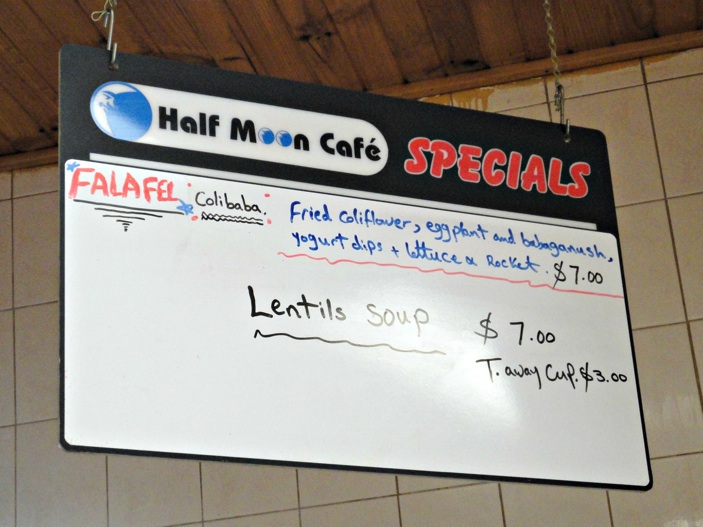 Half Moon Café SPECIALS
FALAFEL Colibaba.
Fried coliflower, eggplant and babaganush,
yogurt dips + lettuce & Rocket. $7.00
Lentils Soup $7.00
T. away Cup. $3.00